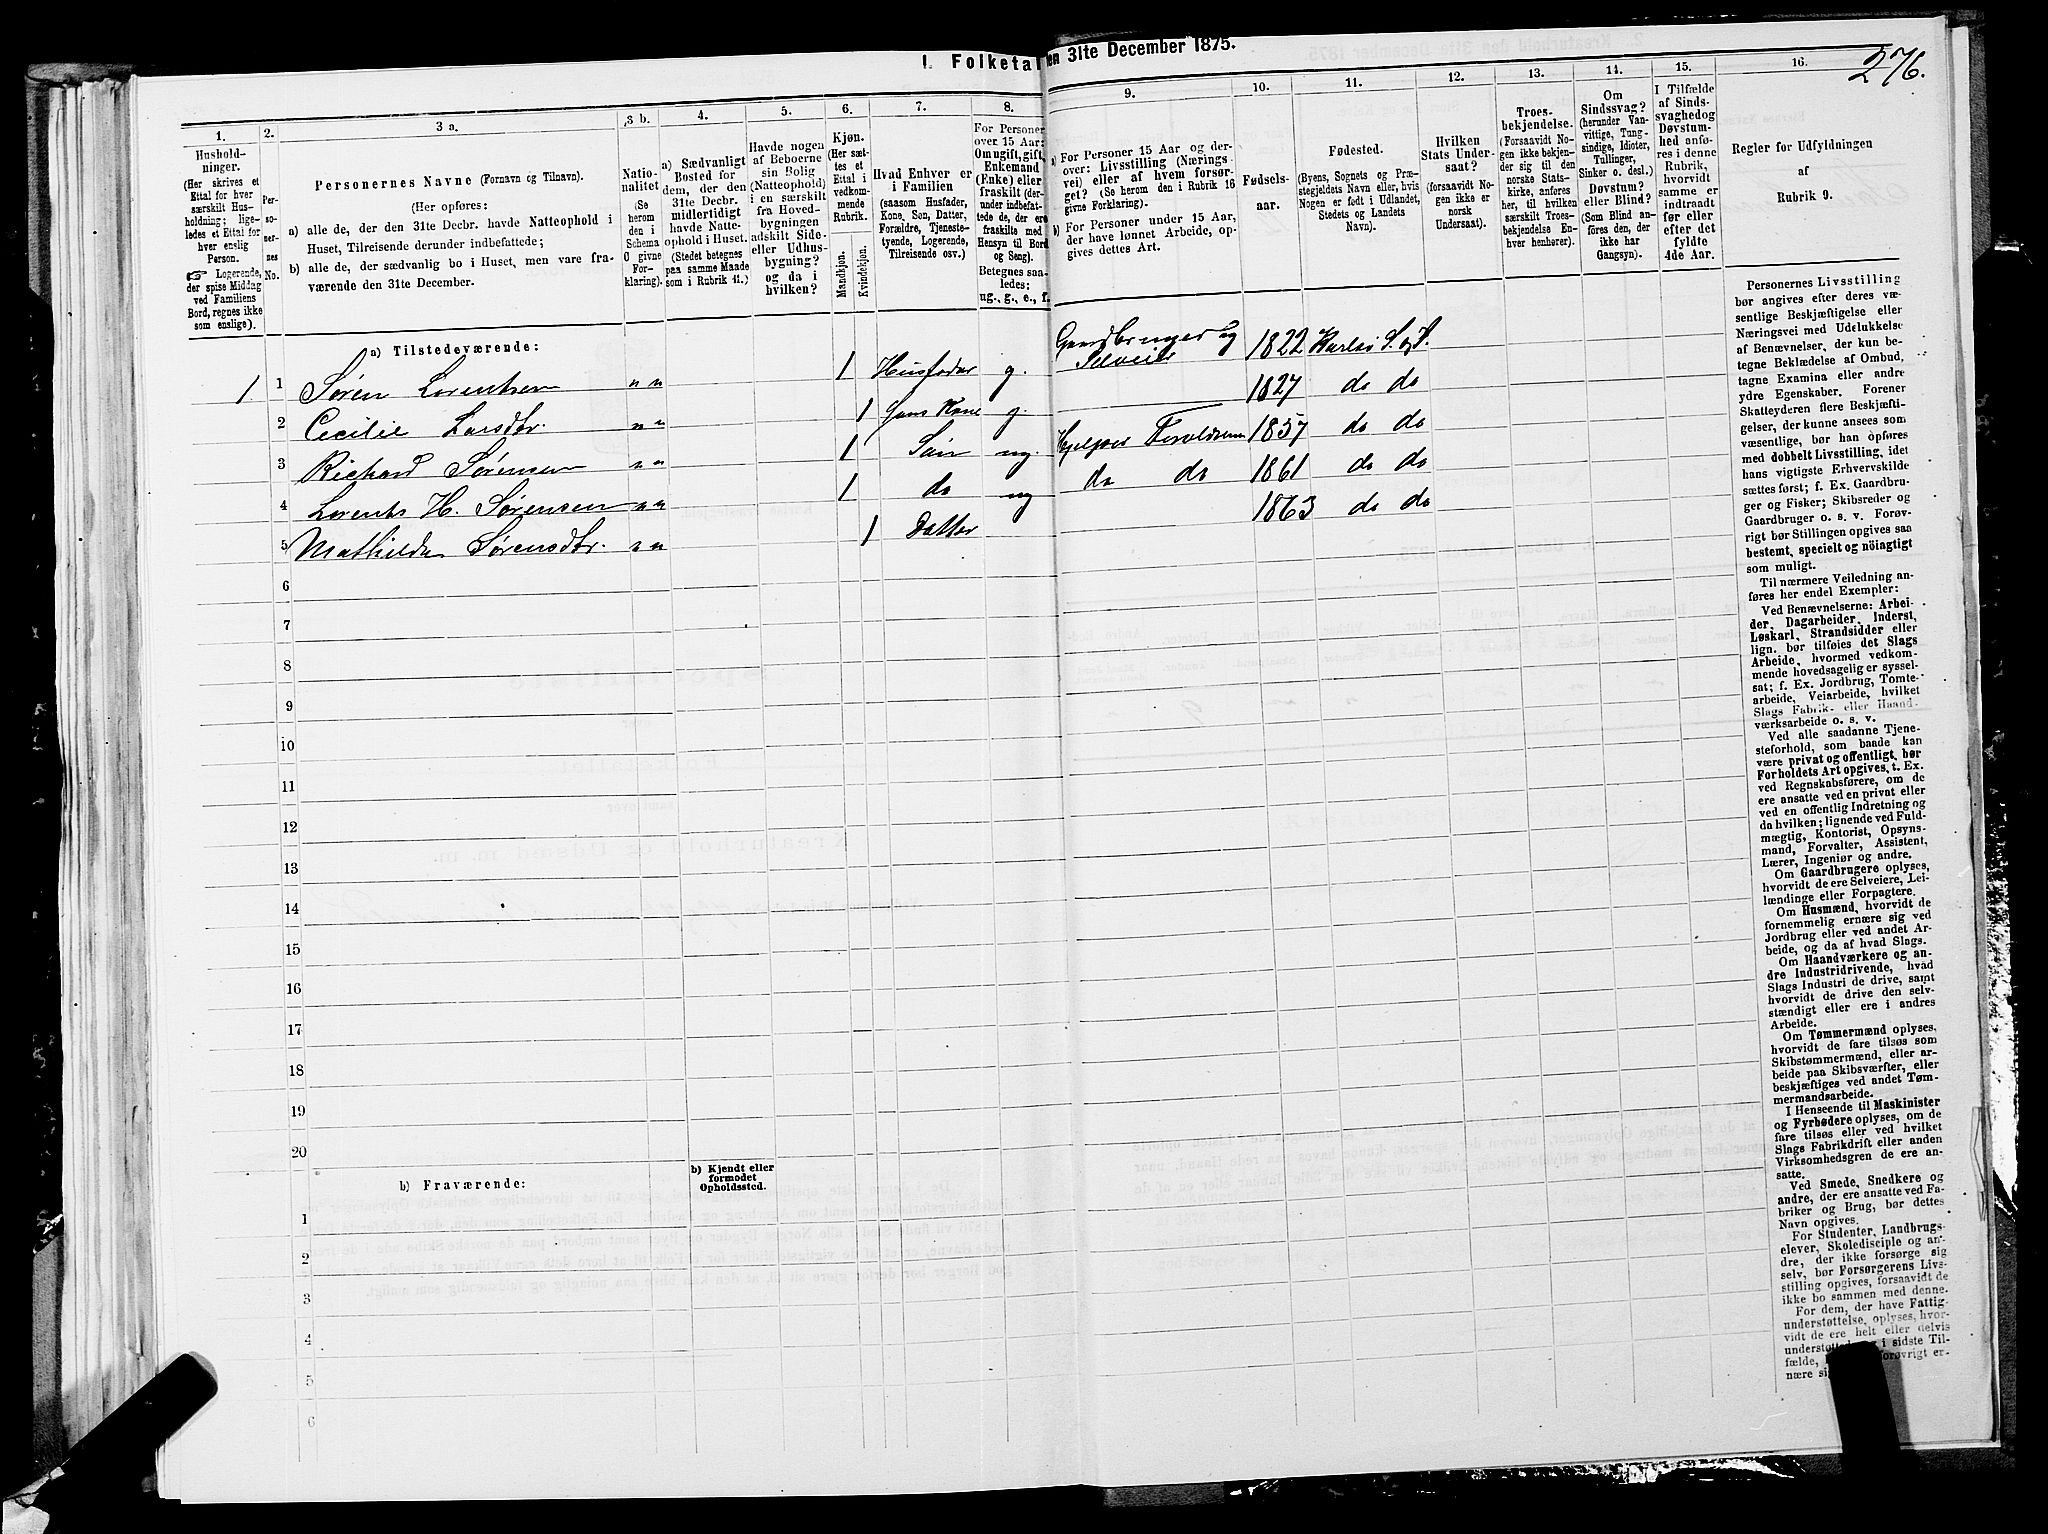 I. Folketal
en 31te December 1875.
276.
1.
Hushold-
ninger.
(Her skrives et
Ettal for hver
særskilt Hus-
holdning; lige-
ledes et Ettal for
hver enslig
Person.
☞ Logerende,
der spise Middag
ved Familiens
Bord, regnes ikke
som enslige).
2.
Per-
so-
ner-
nes
No.
3 a.
Personernes Navne (Fornavn og Tilnavn).
(Her opføres:
a) alle de, der den 31te Decbr. havde Natteophold i
Huset, Tilreisende derunder indbefattede;
b) alle de, der sædvanlig bo i Huset, men vare fra-
værende den 31te December.
3 b.
Natio-
nalitet
(Se
herom
den i
Schema
O givne
For-
klaring).
4.
a) Sædvanligt
Bosted for
dem, der den
31te Decbr.
midlertidigt
havde Natte-
ophold i Huset.
(Stedet betegnes
paa samme Maade
som i Rubrik 11.)
5.
Havde nogen
af Beboerne
sin Bolig
(Natteophold)
i en særskilt
fra Hoved-
bygningen
adskilt Side-
eller Udhus-
bygning?
og da i
hvilken?
6.
Kjøn.
(Her sæt-
tes et
Ettal i
vedkom-
mende
Rubrik.
Mandkjøn.
Kvindekjøn.
7.
Hvad Enhver er
i Familien
(saasom Husfader,
Kone, Søn, Datter,
Forældre, Tjeneste-
tyende, Logerende,
Tilreisende osv.)
8.
For Personer
over 15 Aar:
Om ugift, gift,
Enkemand
(Enke) eller
fraskilt (der-
under indbefat-
tede de, der ere
fraskilte med
Hensyn til Bord
og Seng).
Betegnes saa-
ledes:
ug., g., e., f.
9.
a) For Personer 15 Aar og der-
over: Livsstilling (Nærings-
vei) eller af hvem forsør-
get? (Se herom den i Rubrik 16
givne Forklaring).
b) For Personer under 15 Aar,
der have lønnet Arbeide, op-
gives dettes Art.
10.
Fødsels-
aar.
11.
Fødested.
(Byens, Sognets og Præ-
stegjeldets Navn eller, hvis
Nogen er født i Udlandet,
Stedets og Landets
Navn).
12.
Hvilken
Stats Under-
saat?
(forsaavidt No-
gen ikke er
norsk
Undersaat).
13.
Troes-
bekjendelse.
(Forsaavidt No-
gen ikke bekjen-
der sig til den
norske Stats-
kirke, anføres
her, til hvilken
særskilt Troes-
bekjendelse En-
hver henhører).
14.
Om
Sindssvag?
(herunder Van-
vittige, Tung-
sindige, Idioter,
Tullinger,
Sinker o. desl.)
Døvstum?
eller Blind?
(Som Blind an-
føres den, der
ikke har
Gangsyn).
15.
I Tilfælde
af Sinds-
svaghed og
Døvstum-
hed anfø-
res i denne
Rubrik,
hvorvidt
samme er
indtraadt
før eller
efter det
fyldte
4de Aar.
16.
Regler for Udfyldningen
af
Rubrik 9.
a) Tilstedeværende:
1 1 Søren Lorentsen " " 1 Husfader g. Gaardbruger og Selveier 1822 Karlsø S. & P.
2 Cecilie Larsdtr. " " 1 Hans Kone g. 1827 do do
3 Richard Sørensen " " 1 Søn ug. Hjelper Forældrene 1857 do do
4 Lorents H. Sørensen " " 1 do ug do do 1861 do do
5 Mathilda Sørensdtr. " " 1 Datter 1863 do do
6
7
8
9
10
11
12
13
14
15
16
17
18
19
20
b) Fraværende:
b) Kjendt eller
formodet
Opholdssted.
1
2
3
4
5
6
Personernes Livsstilling
bør angives efter deres væ-
sentlige Beskjæftigelse eller
Næringsvei med Udelukkelse
af Benævnelser, der kun be-
tegne Beklædelse af Ombud,
tagne Examina eller andre
ydre Egenskaber. Forener
Skatteyderen flere Beskjæfti-
gelser, der kunne ansees som
væsentlige, bør han opføres
med dobbelt Livsstilling, idet
hans vigtigste Erhvervskilde
sættes først; f. Ex. Gaardbru-
ger og Fisker; Skibsreder og
Gaardbruger o. s. v. Forøv-
rigt bør Stillingen opgives saa
bestemt, specielt og nöiagtigt
som muligt.
Til nærmere Veiledning an-
føres her endel Exempler:
Ved Benævnelserne: Arbei-
der, Dagarbeider, Inderst,
Løskarl, Strandsidder eller
lign. bør tilføies det Slags
Arbeide, hvormed vedkom-
mende hovedsagelig er syssel-
sat; f. Ex. Jordbrug, Tomte-
arbeide, Veiarbeide, hvilket
Slags Fabrik- eller Haand-
værksarbeide o. s. v.
Ved alle saadanne Tjene-
steforhold, som baade kan
være privat og offentligt, bør
Forholdets Art opgives, t. Ex.
ved Regnskabsførere, om de
ere ansatte ved en privat eller
ved en offentlig Indretning og
da hvilken; lignende ved Fuld-
mægtig, Kontorist, Opsyns-
mand, Forvalter, Assistent,
Lærer, Ingeniør og andre.
Om Gaardbrugere oplyses,
hvorvidt de ere Selveiere, Lei-
lændinge eller Forpagtere.
Om Husmænd, hvorvidt de
fornemmelig ernære sig ved
Jordbrug eller ved andet Ar-
beide, og da af hvad Slags.
Om Haandværkere og an-
dre Industridrivende, hvad
Slags Industri de drive, samt
hvorvidt de drive den selv-
stændigt eller ere i andres
Arbeide.
Om Tømmermænd oplyses,
hvorvidt de fare tilsøs som
Skibstømmermænd, eller ar-
beide paa Skibsværfter, eller
beskjæftiges ved andet Tøm-
mermandsarbeide.
I Henseende til Maskinister
og Fyrbødere oplyses, om de
fare tilsøs eller ved hvilket
Slags Fabrikdrift eller anden
Virksomhedsgren de ere an-
satte.
Ved Smede, Snedkere og
andre, der ere ansatte ved Fa-
briker og Brug, bør dettes
Navn opgives.
For Studenter, Landbrugs-
elever, Skoledisciple og an-
dre, der ikke forsørge sig
selv, bør Forsørgerens Livs-
stilling opgives, forsaavidt de
ikke bo sammen med denne.
For dem, der have Fattig-
understøttelse, oplyses, hvor-
vidt de ere helt eller delvis
i sidste Til-
fælde, forøvrigt er-
nære